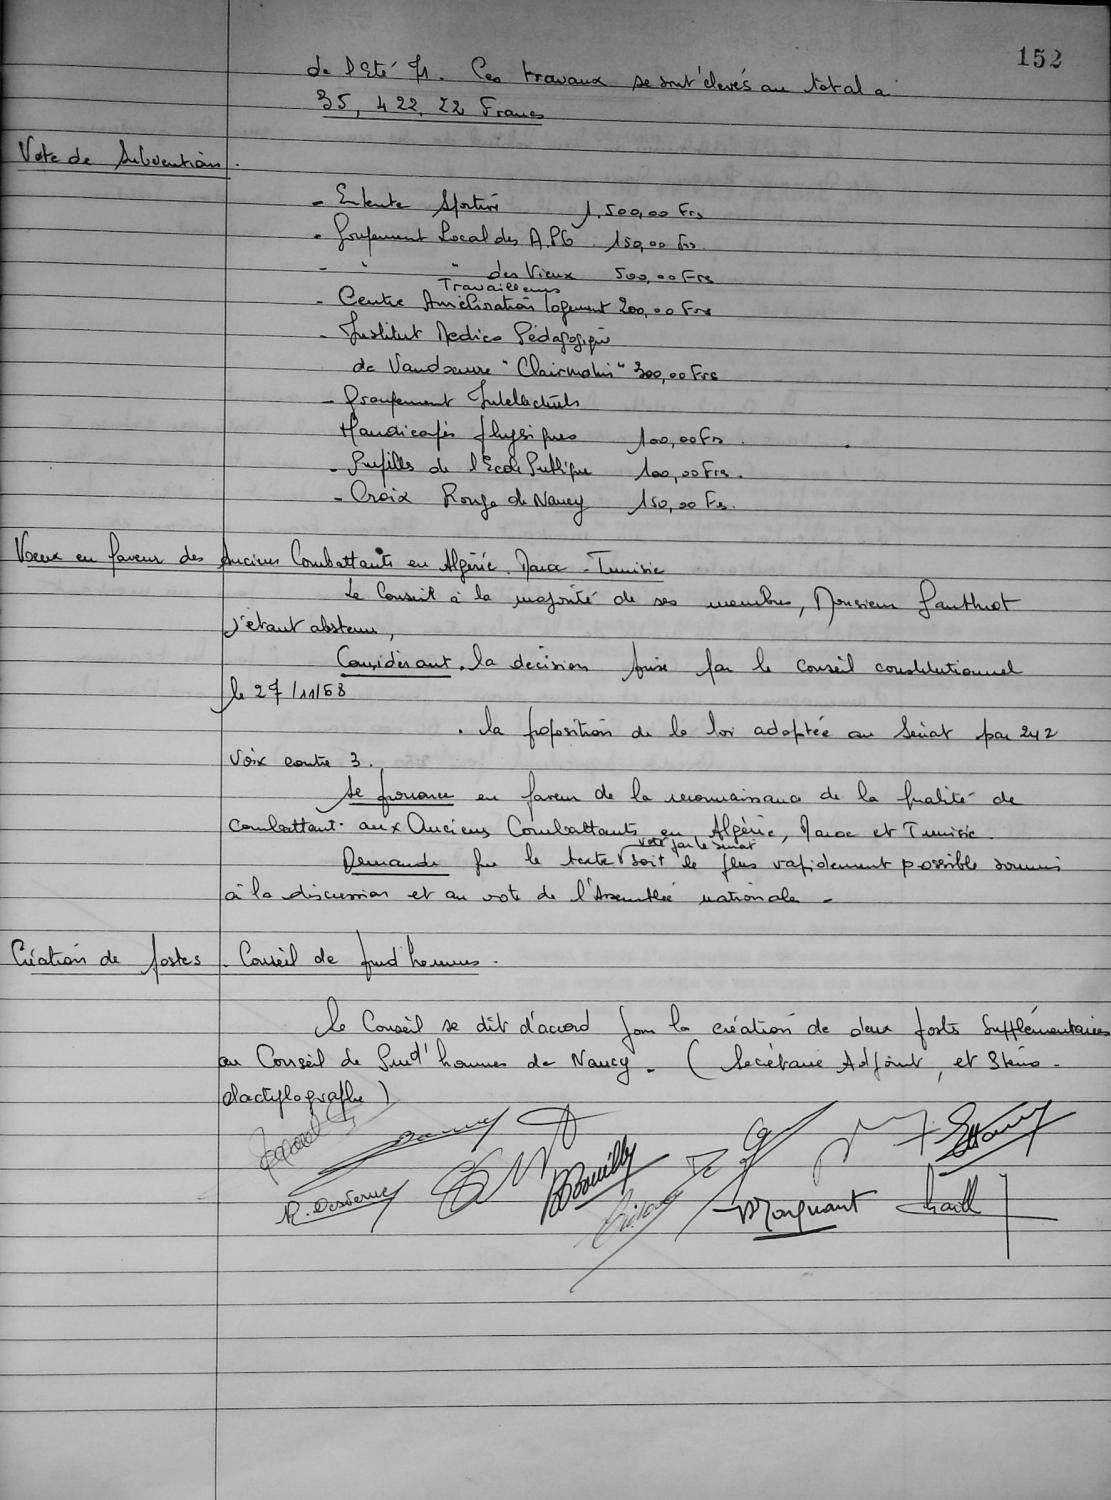 152
de l'Eté 71. Ces travaux se sont élevés au total a
35,422,22 Francs
Vote de Subventions.
- Entente Sportive 1,500,00 Frs
- Groupement Local des A.PG 150,00 Frs
- " " des Vieux 500,00 Frs
Travailleurs
- Centre Amélioration logement 200,00 Frs
- Institut Medico Pédagogique
de Vandœuvre "Clairmatin" 300,00 Frs
- Groupement Intellectuels
Handicapés physiques 100,00 Frs.
- Pupilles de l'Ecole Publique 100,00 Frs.
- Croix Rouge de Nancy 150,00 Frs.
Voeux en faveur des Anciens Combattants en Algérie. Maroc - Tunisie
Le Conseil à la majorité de ses membres, Monsieur Gauthrot
s'étant abstenu,
Considérant . la décision prise par le conseil constitutionnel
le 27/11/68
. la proposition de la loi adoptée au Sénat par 242
voix contre 3.
Se prononce en faveur de la reconnaissance de la qualité de
combattant aux Anciens Combattants en Algérie, Maroc et Tunisie.
voté par le Sénat
Demande que le texte soit le plus rapidement possible soumis
à la discussion et au vote de l'Assemblée nationale -
Création de postes . Conseil de prud'hommes -
Le Conseil se dit d'accord pour la création de deux postes supplémentaires
au Conseil de Prud'hommes de Nancy - (Secrétaire Adjoint, et Sténo-
dactylographe)
Marquant